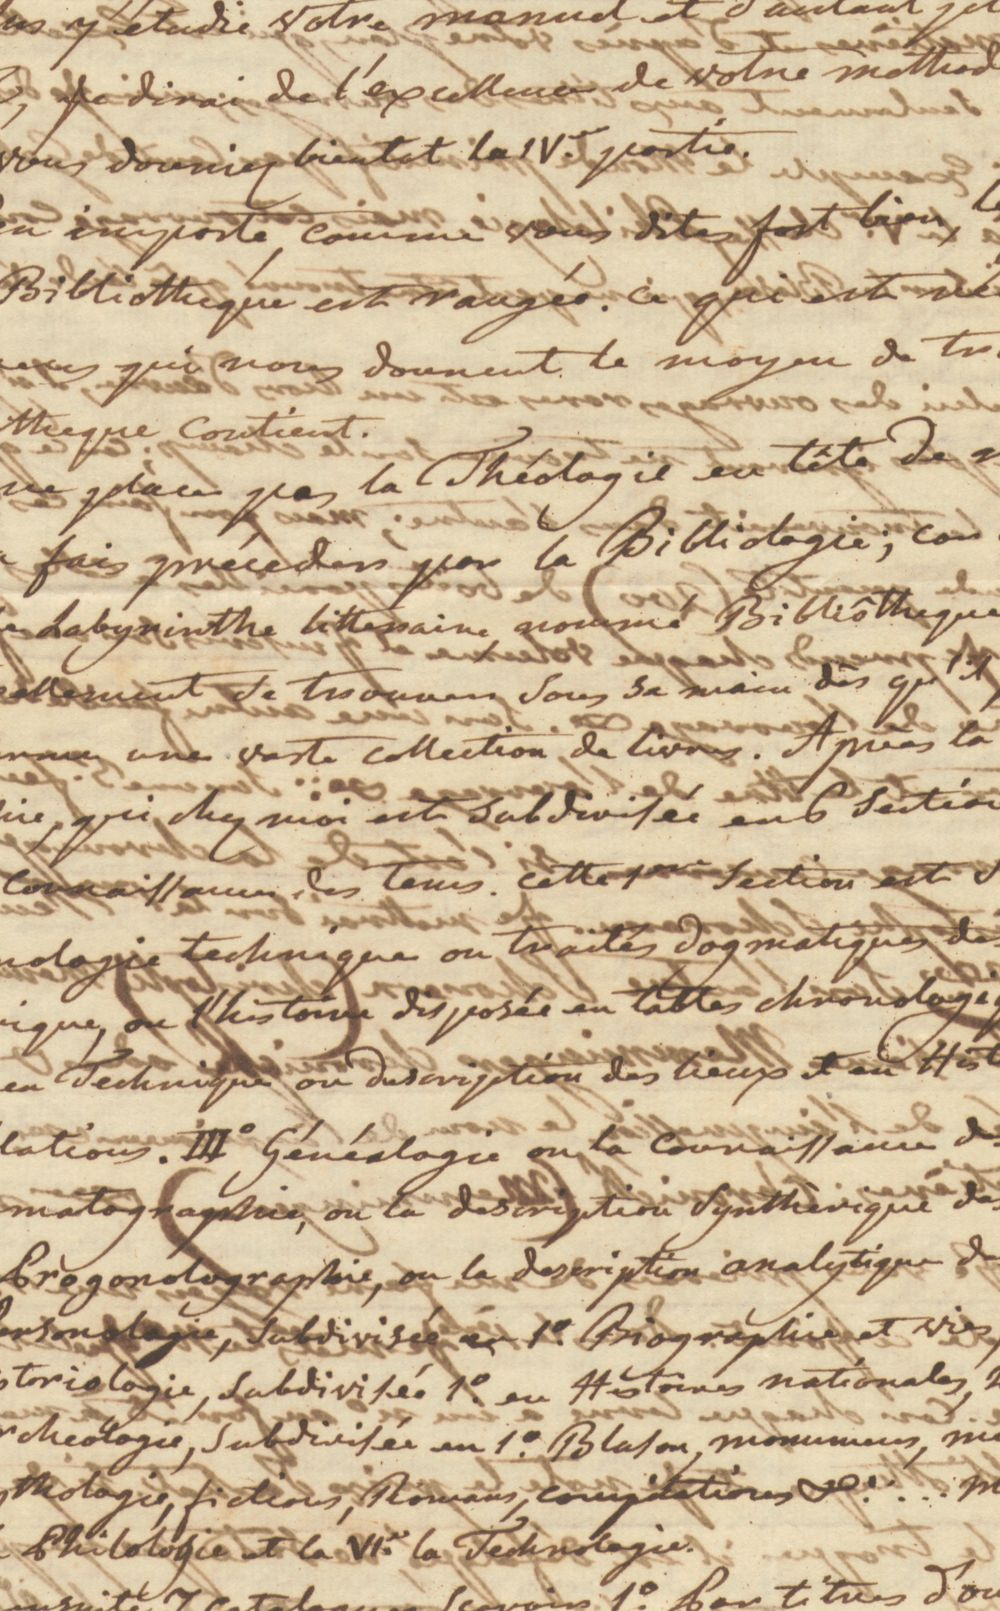 y étudie votre manuel et d'autant
je dirai de l'excellence de votre method
vous donniez bientot la IVe partie.
importe, comme vous dites fort bien,
Bibliothèque est rangée. Ce qui est
qui nous donnent le moyen de
theque contient.
ne place pas la Théologie en tête de
fais précéder par la Bibliologie; car
Labyrinthe litteraire nommé Bibliôtheque
de trouver sous sa main dès qu'il
une vaste collection de livres. Après la
qui chez moi est subdivisée en 6 Section
connaissance des tems. cette 1ere Section est
nologie technique ou traités dogmatiques des
rique, ou l'histoire disposée en tables chronologiq
en Technique ou description des lieux et en Hist
lations. III° Généalogie ou la connaissance de
matographie, ou la description Synthèrique des
Progonolographie, ou la description analytique de
Personologie, subdivisée en 1°. Biographie et vies
storiologie, subdivisée 1°. en Histoires nationales, 2
rcheologie, subdivisée en 1°. Blason, monumens, mé
ythologie, fictions, Romans, compilations &c: ... m
Philologie et la VIe. la Technologie.
ensuite 7 catalogues Savoir 1°. Par titres d'ou